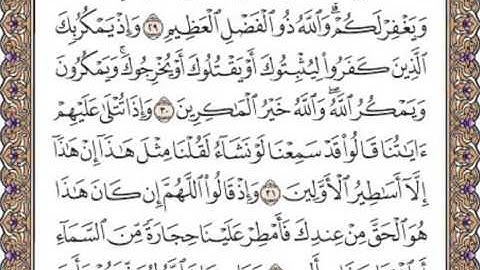 وَيَغْفِرْ لَكُمْ ۗ وَاللَّهُ ذُو الْفَضْلِ الْعَظِيمِ ٢٩ وَإِذْ يَمْكُرُ بِكَ
الَّذِينَ كَفَرُوا لِيُثْبِتُوكَ أَوْ يَقْتُلُوكَ أَوْ يُخْرِجُوكَ ۚ وَيَمْكُرُونَ
وَيَمْكُرُ اللَّهُ ۖ وَاللَّهُ خَيْرُ الْمَاكِرِينَ ٣٠ وَإِذَا تُتْلَىٰ عَلَيْهِمْ
ءَايَاتُنَا قَالُوا قَدْ سَمِعْنَا لَوْ نَشَاءُ لَقُلْنَا مِثْلَ هَٰذَا ۙ إِنْ هَٰذَا
إِلَّا أَسَاطِيرُ الْأَوَّلِينَ ٣١ وَإِذْ قَالُوا اللَّهُمَّ إِن كَانَ هَٰذَا
هُوَ الْحَقَّ مِنْ عِندِكَ فَأَمْطِرْ عَلَيْنَا حِجَارَةً مِّنَ السَّمَاءِ